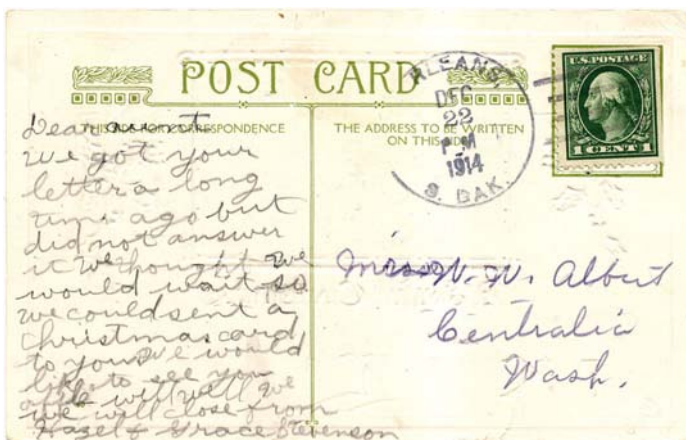 POST CARD
THIS SIDE FOR CORRESPONDENCE
THE ADDRESS TO BE WRITTEN
ON THIS SIDE
RLEANS,
DEC
22
P M
1914
S. DAK.
U.S. POSTAGE
1 CENT 1
Dear aunt
We got your
letter a long
time ago but
did not answer
it We thought we
would wait so
we could sent a
Christmas card
to you We would
like to see you
all well we
we will close from
Hazel & Grace Stevenson
Mrs W. W. Albert
Centralia
Wash.